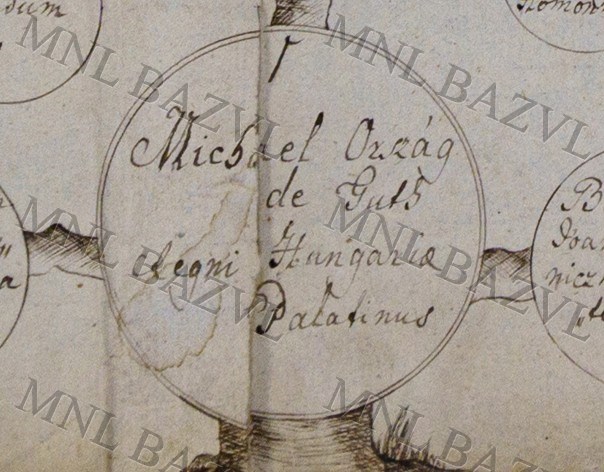 dum
Homon
Michael Ország
de Guth
Regni Hungariæ
Palatinus
B
Joan
nicz
a
MNL BAZVL
MNL BAZVL
MNL BAZVL
MNL BAZVL
MNL BAZVL
MNL BAZVL